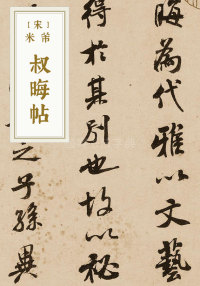 [宋]
米芾
叔晦帖
晦為代雅以文藝
得於其别也故以秘
之子孫異